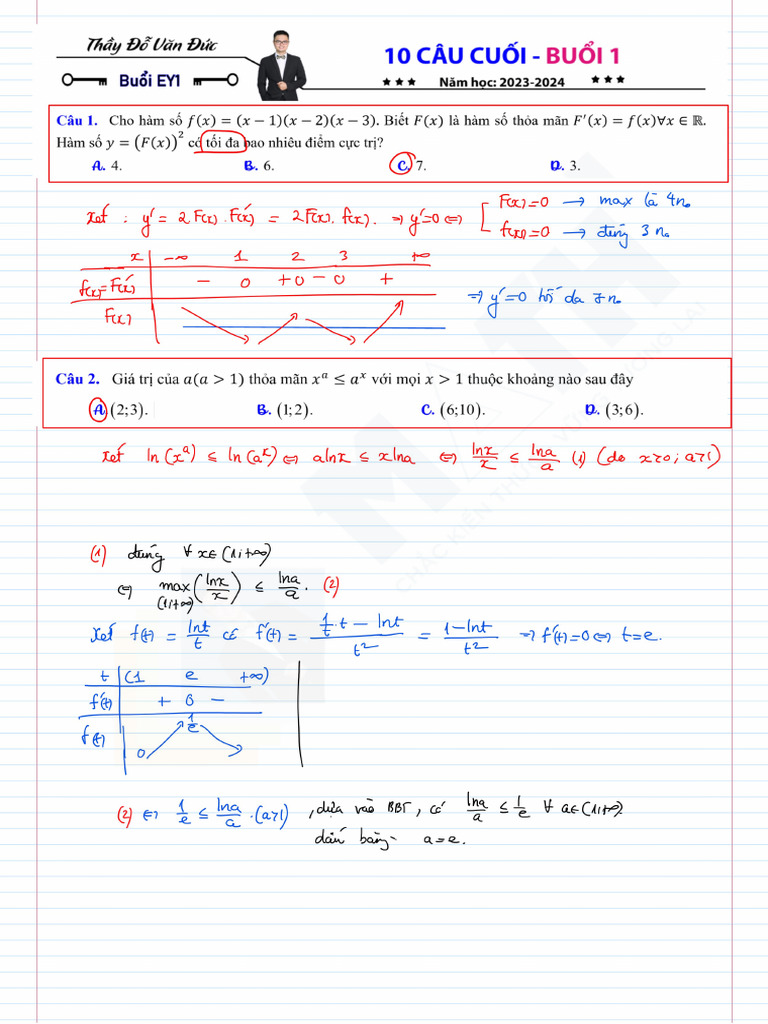 Thầy Đỗ Văn Đức
10 CÂU CUỐI - BUỔI 1
Buổi EY1
★★★ Năm học: 2023-2024 ★★★
Câu 1. Cho hàm số f(x) = (x − 1)(x − 2)(x − 3). Biết F(x) là hàm số thỏa mãn F′(x) = f(x)∀x ∈ ℝ.
Hàm số y = (F(x))² có tối đa bao nhiêu điểm cực trị?
A. 4. B. 6. C. 7. D. 3.
Xét : y' = 2F(x).F'(x) = 2F(x).f(x). ⇒ y'=0 ⇔ [ F(x)=0 → max là 4n₀
f(x)=0 → đúng 3 n₀
x | −∞ 1 2 3 +∞
f(x)=F'(x) | − 0 + 0 − 0 +
F(x)
⇒ y'=0 tối đa 7 n₀
Câu 2. Giá trị của a(a > 1) thỏa mãn xᵃ ≤ aˣ với mọi x > 1 thuộc khoảng nào sau đây
A. (2;3). B. (1;2). C. (6;10). D. (3;6).
Xét ln(xᵃ) ≤ ln(aˣ) ⇔ alnx ≤ xlna ⇔ lnx/x ≤ lna/a (1) (do x>0; a>1)
(1) đúng ∀ x∈(1;+∞)
⇔ max(1;+∞) (lnx/x) ≤ lna/a. (2)
Xét f(t) = lnt/t có f'(t) = (1/t.t − lnt)/t² = (1−lnt)/t² ⇒ f'(t)=0 ⇔ t=e.
t | (1 e +∞)
f'(t) | + 0 −
f(t) | 0 1/e
(2) ⇔ 1/e ≤ lna/a. (a>1) , dựa vào BBT, có lna/a ≤ 1/e ∀ a∈(1;+∞)
dấu bằng a=e.